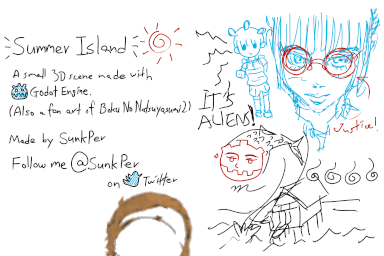 Summer Island
A small 3D scene made with
Godot Engine.
(Also a fan art of Boku No Natsuyasumi 2)
Made by SunkPer
Follow me @SunkPer
on Twitter
IT'S
ALIENS!
Justice!